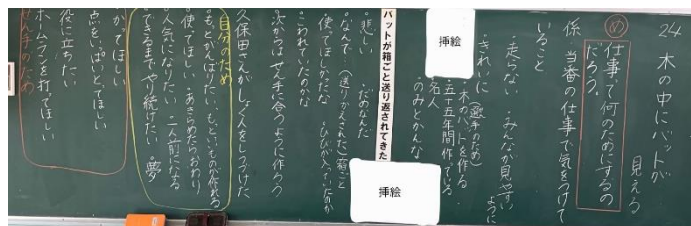 24 木の中にバットが
見える
め
仕事って何のためにするの
だろう。
係、当番の仕事で気をつけて
いること
・走らない ・みんなが見やすい
ように
・きれいに
挿絵
(選手のため)
・木のバットを作る
・五十五年間作っている。
名人
・のみとかんな
バットが箱ごと送り返されてきた
挿絵
・悲しい ・だめなんだ
・なんで(送りかえされた)箱ごと
・使ってほしかったな
・こわれていたのかな
・次からはせん手に合うように作ろう
久保田さんがしょく人をしつづけた
自分のため
・もっとがんばりたい。もっといいものが作れる
・使ってほしい ・あきらめたらおわり
・人気になりたい ・一人前になる
・できるまでやり続けたい ・夢
かってほしい
点をいっぱいとってほしい
役に立ちたい
ホームランを打ってほしい
せん手のため